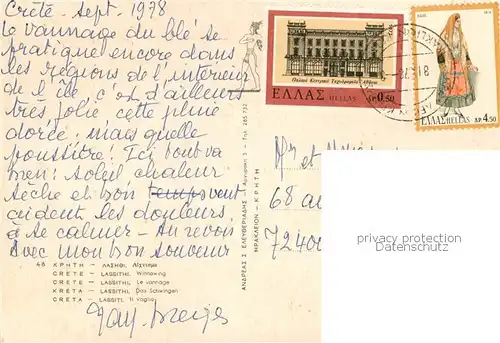 Crète - Sept. 1978
Le vannage du blé se
pratique encore dans
les régions de l'intérieur
de l'île c'est d'ailleurs
très jolie cette pluie
dorée ; mais quelle
poussière ! Ici tout va
bien : soleil chaleur
sèche et bon temps vent
aident les douleurs
à se calmer - Au revoir
Avec mon bon souvenir
48 ΚΡΗΤΗ - ΛΑΣΗΘΙ. Λίχνισμα
CRETE - LASSITHI. Winnowing
CRETE - LASSITHI. Le vannage
KRETA - LASSITHI. Das Schwingen
CRETA - LASSITI. Il vaglio
ΑΝΔΡΕΑΣ Σ. ΕΛΕΥΘΕΡΙΑΔΗΣ
ΗΡΑΚΛΕΙΟΝ - ΚΡΗΤΗ
Τηλ. 285 732
Παλαιό Κεντρικό Ταχυδρομείο Αθήνας
ΕΛΛΑΣ HELLAS ΔΡ 0.50
ΕΛΛΑΣ HELLAS ΔΡ 4.50
Mr et
68
72400
privacy protection
Datenschutz